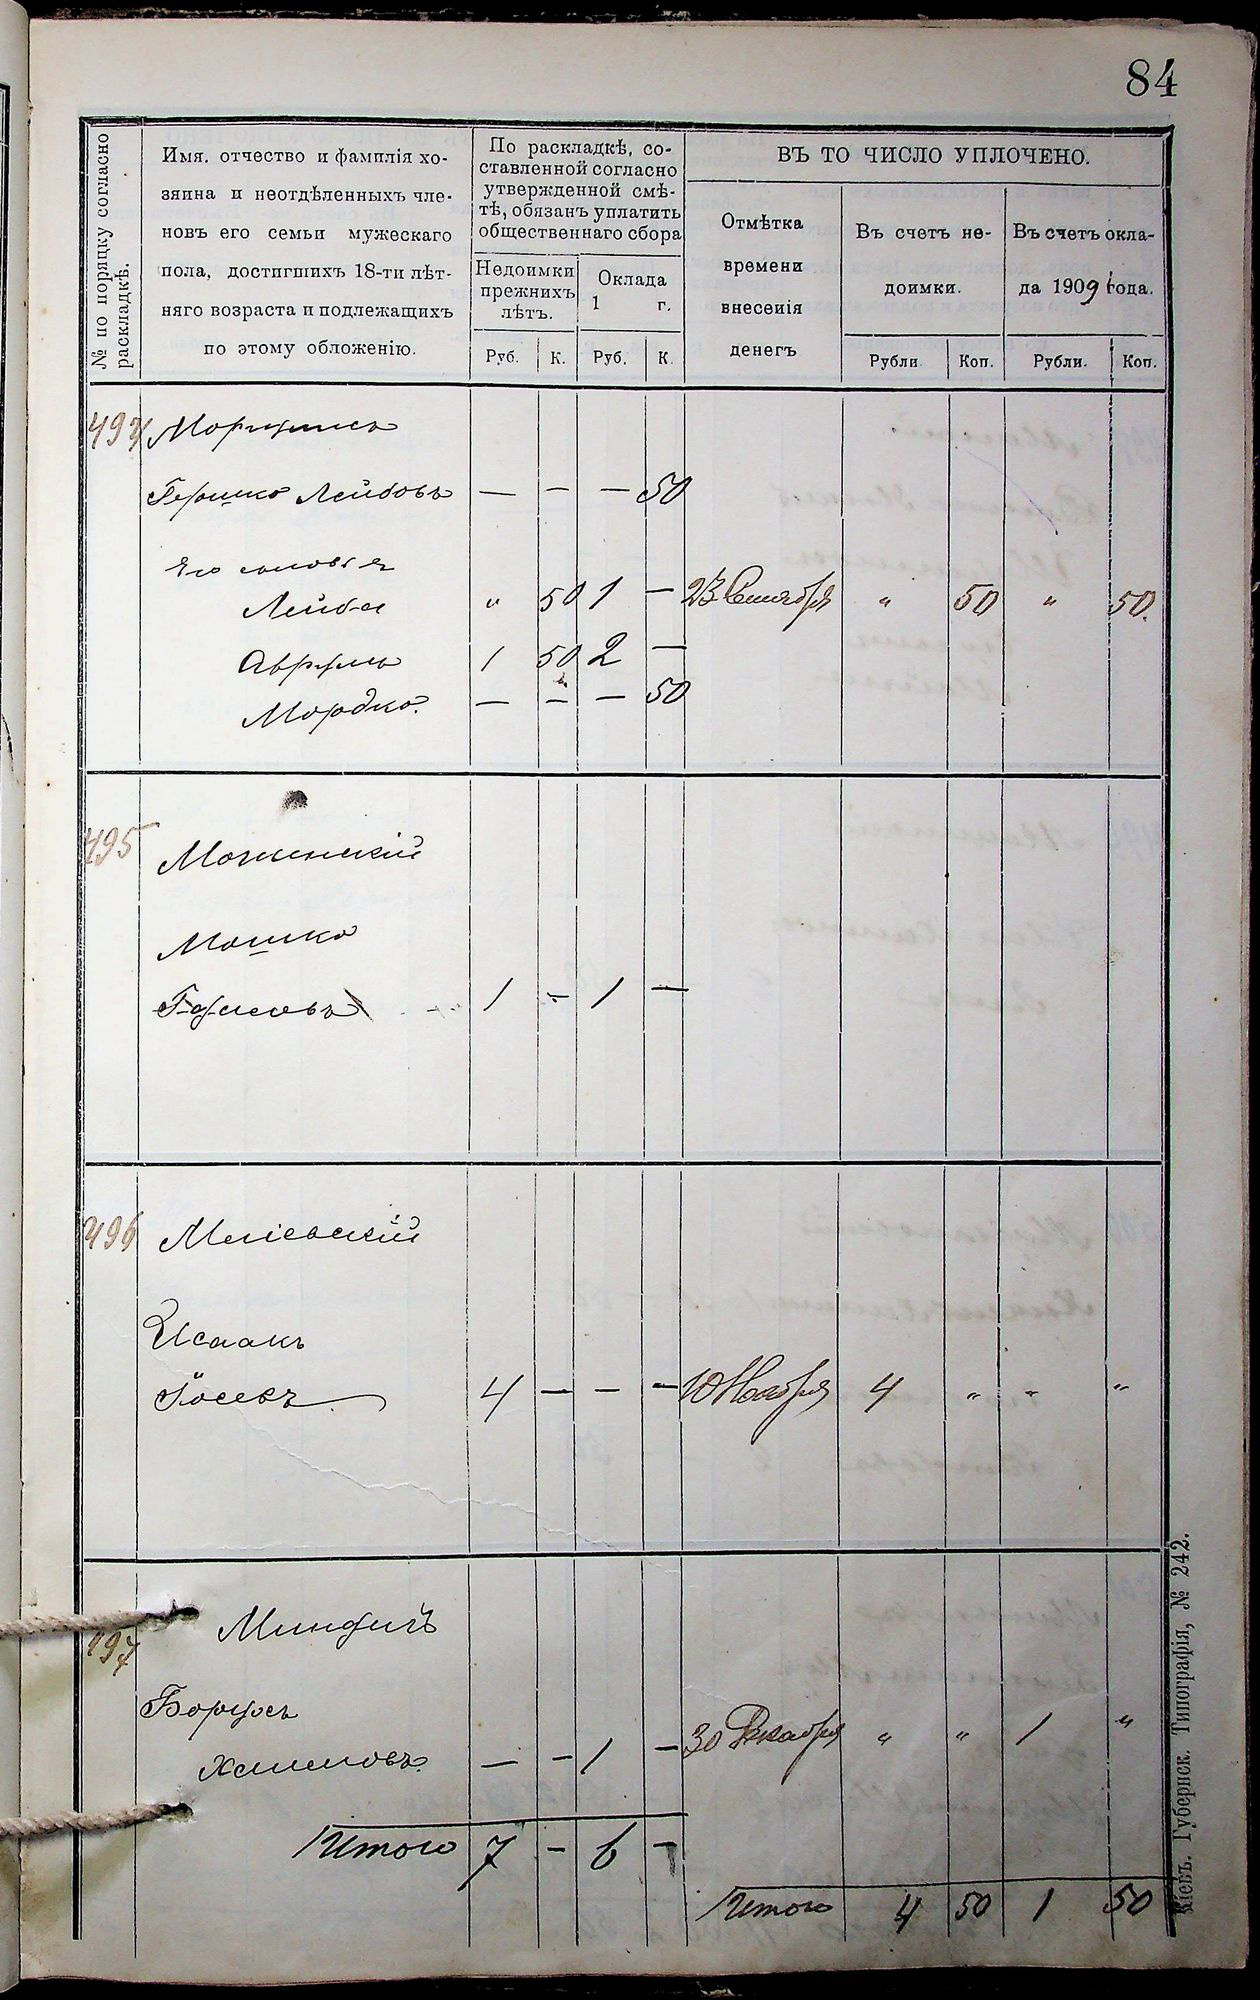 84
№ по порядку согласно
раскладкѣ.
Имя, отчество и фамилія хо-
зяина и неотдѣленныхъ чле-
новъ его семьи мужескаго
пола, достигшихъ 18-ти лѣт-
няго возраста и подлежащихъ
по этому обложенію.
По раскладкѣ, со-
ставленной согласно
утвержденной смѣ-
тѣ, обязанъ уплатить
общественнаго сбора
Недоимки
прежнихъ
лѣтъ.
Оклада
1 г.
Руб. К. Руб. К.
ВЪ ТО ЧИСЛО УПЛОЧЕНО.
Отмѣтка
времени
внесенія
денегъ
Въ счетъ не-
доимки.
Въ счетъ окла-
да 1909 года.
Рубли. Коп. Рубли. Коп.
494
Гершко Лейбовъ — — — 50
Его сыновья
Лейба " 50 1 — 23 Сентября " 50 " 50.
Аврумъ 1 50 2 —
Мордко. — — — 50
495
Мошко
1 — 1 —
496
Исаакъ
4 — — — 10 Ноября 4 " " "
497
Борухъ
— — 1 — 30 Декабря " " 1 "
Итого 7 — 6 —
Итого 4 50 1 50
Кіевъ. Губернск. Типографія, № 242.